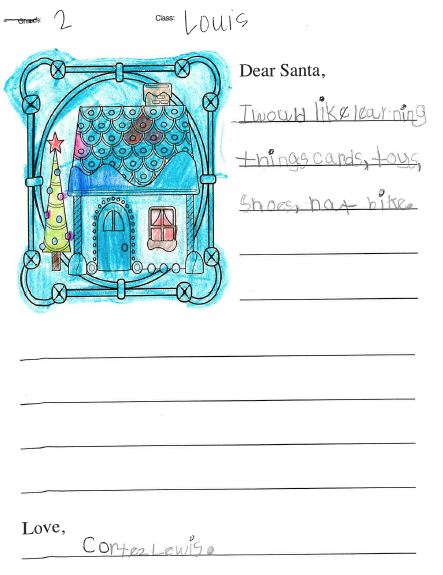 Grade: 2 Class: Louis
Dear Santa,
I would like learning
things cards, toys,
shoes, hat bike.
Love,
Cortez Lewis.